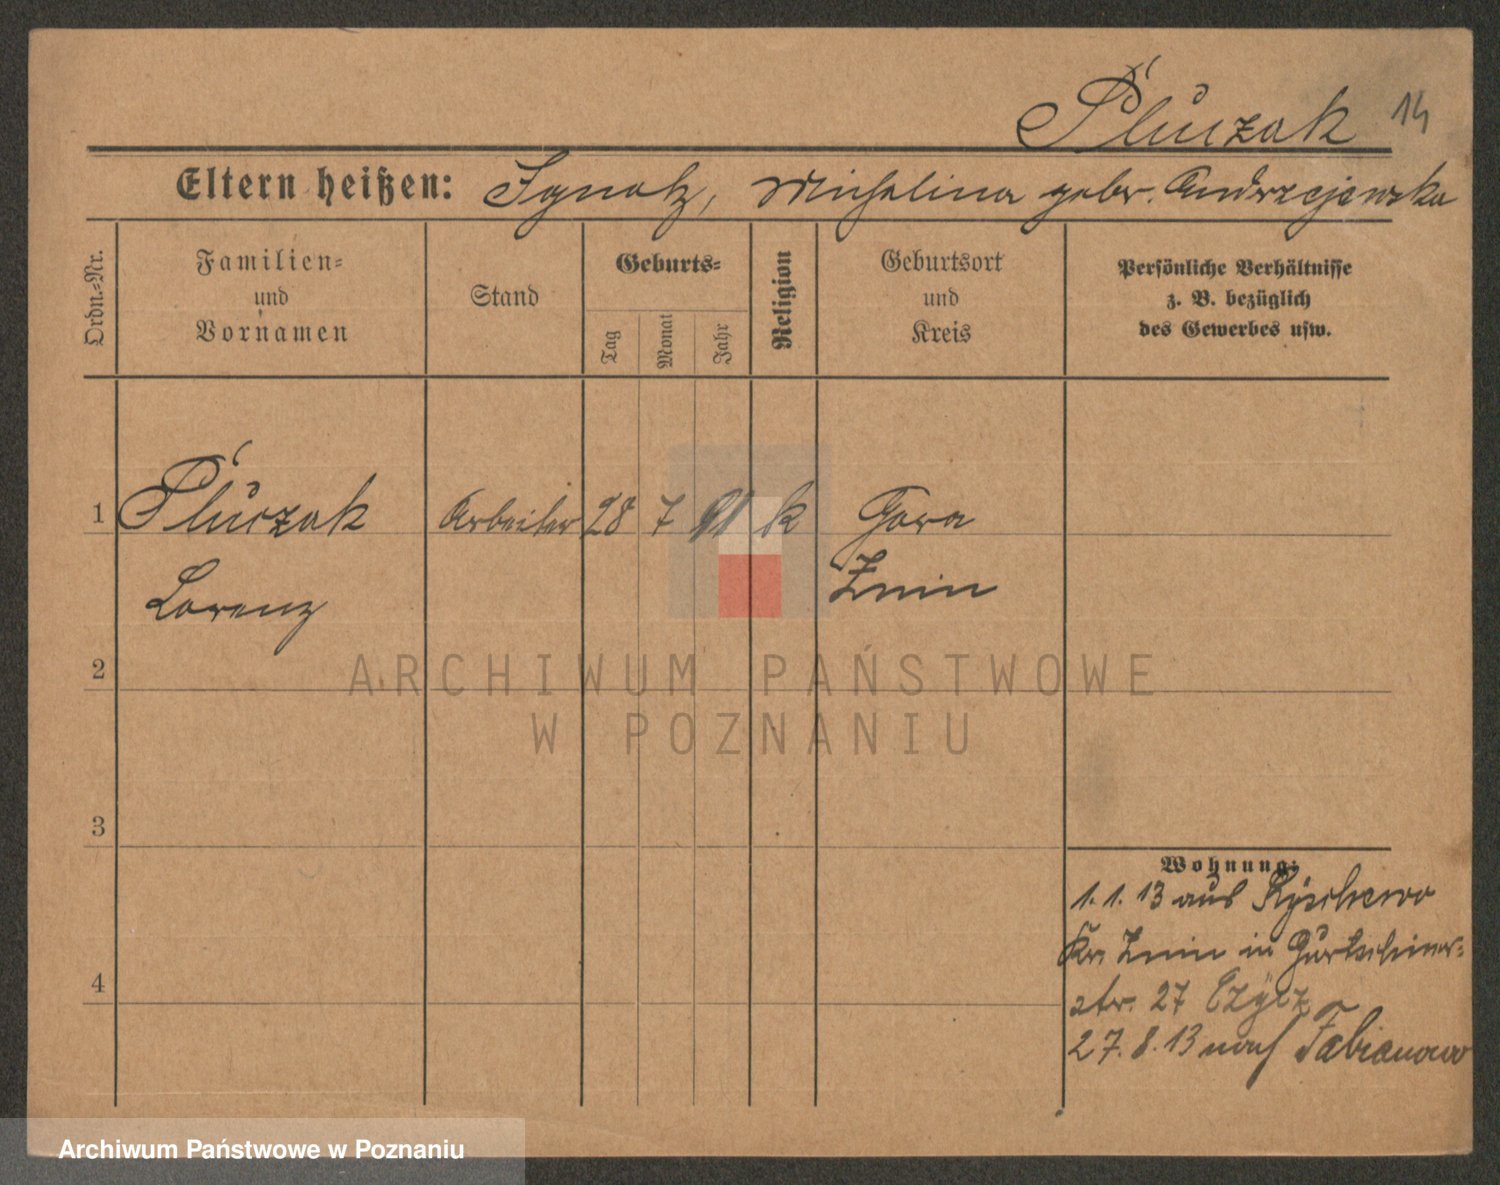 Pluczak 14
Eltern heißen: Ignatz, Michalina gebr. Andrzejewska
Ordn.-Nr.
Familien-
und
Vornamen
Stand
Geburts-
Tag
Monat
Jahr
Religion
Geburtsort
und
Kreis
Persönliche Verhältnisse
z. B. bezüglich
des Gewerbes usw.
1 Pluczak Arbeiter 28 7 91 k Gora
Lorenz Znin
2
3
4
Wohnung:
1. 1. 13 aus
Kr. Znin in Gurtschiner-
str. 27
27. 8. 13 nach Fabianowo
ARCHIWUM PAŃSTWOWE
W POZNANIU
Archiwum Państwowe w Poznaniu